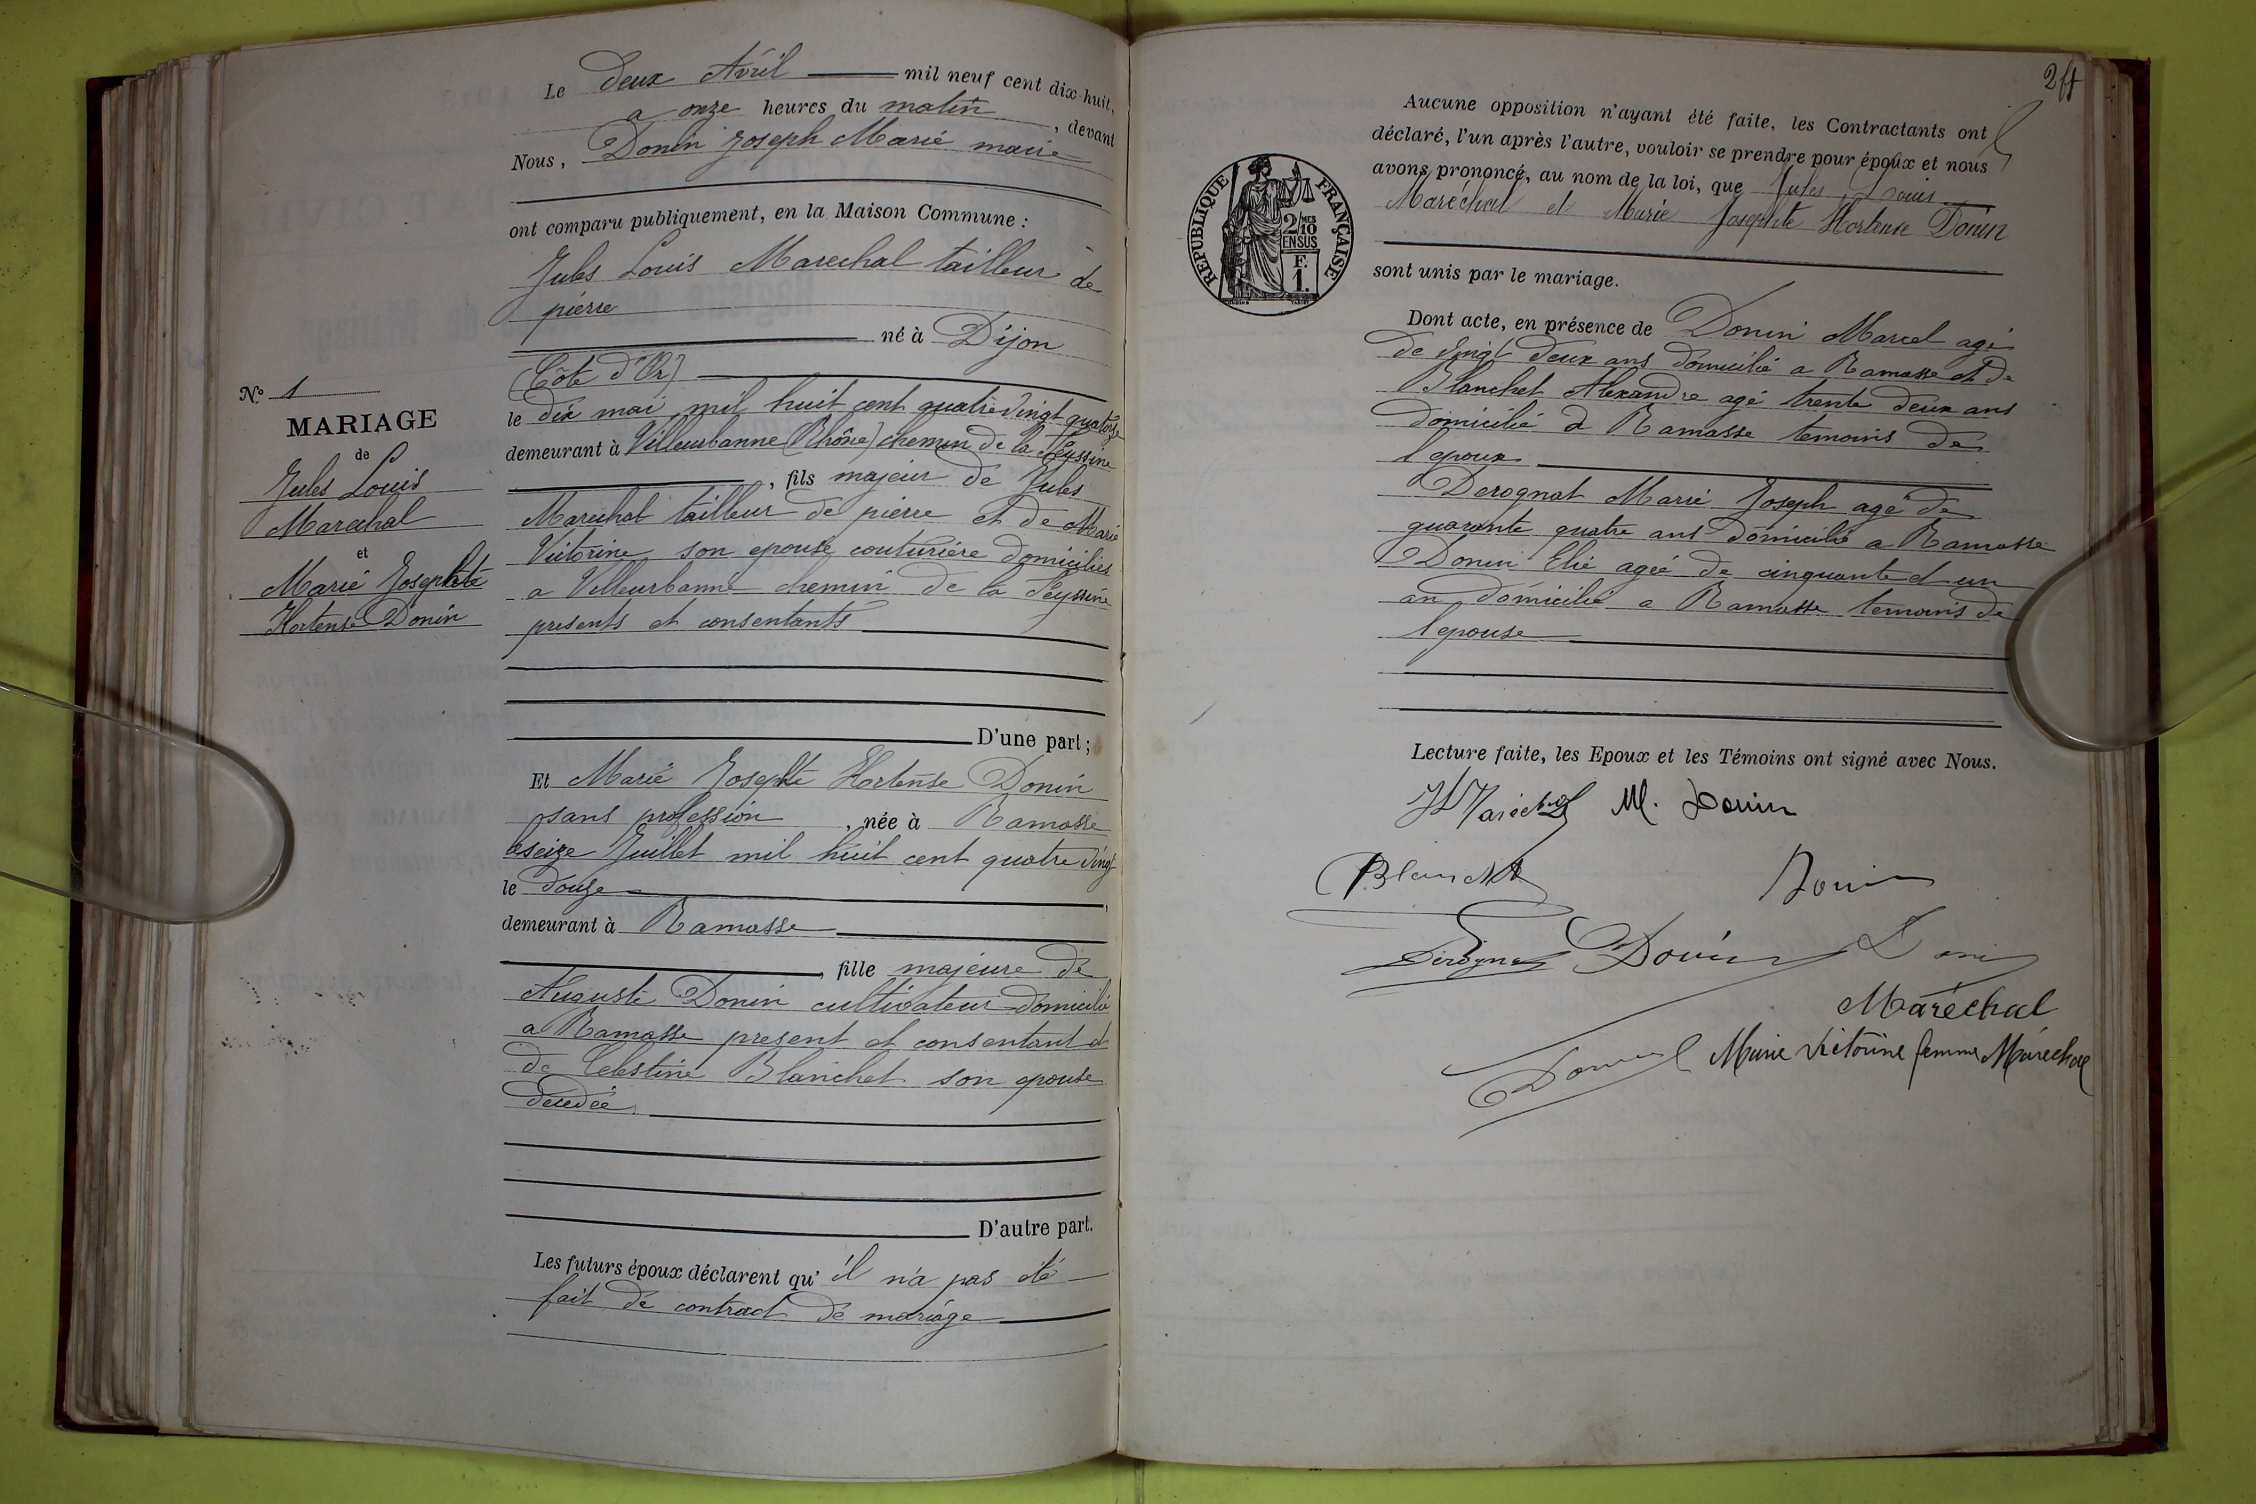 Le deux Avril mil neuf cent dix-huit,
a onze heures du matin, devant
Nous, Donin Joseph Marie maire
ont comparu publiquement, en la Maison Commune :
Jules Louis Marechal tailleur de
pierre
né à Dijon
(Côte d'Or)
le dix mai mil huit cent quatre vingt quatorze
demeurant à Villeurbanne (Rhône) chemin de la Feyssine
, fils majeur de Jules
Marechal tailleur de pierre et de Marie
Victorine son epouse couturière domiciliés
a Villeurbanne chemin de la Feyssine
presents et consentants
D'une part ;
Nº 1
MARIAGE
de
Jules Louis
Marechal
et
Marie Josephte
Hortense Donin
Et Marie Josephte Hortense Donin
sans profession, née à Ramasse
le seize Juillet mil huit cent quatre vingt
le douze
demeurant à Ramasse
, fille majeure de
Auguste Donin cultivateur domicilié
a Ramasse present et consentant et
de Celestine Blanchet son epouse
decedée
D'autre part.
Les futurs époux déclarent qu' il n'a pas été
fait de contract de mariage
24
Aucune opposition n'ayant été faite, les Contractants ont
déclaré, l'un après l'autre, vouloir se prendre pour époux et nous
avons prononcé, au nom de la loi, que Jules Louis
Maréchal et Marie Josephte Hortense Donin
sont unis par le mariage.
RÉPUBLIQUE FRANÇAISE
2/10
EN SUS
F.
1.
Dont acte, en présence de Donin Marcel agé
de vingt deux ans domicilié a Ramasse et de
Blanchet Alexandre agé trente deux ans
domicilié a Ramasse temoins de
l epoux
Derognat Marie Joseph agé de
quarante quatre ans domicilié a Ramasse
Donin Elie agée de cinquante et un
an domicilié a Ramasse temoins de
l epouse
Lecture faite, les Epoux et les Témoins ont signé avec Nous.
JL Maréchal M. Donin
Blanchet Donin
Derognat Donin Donin
Maréchal
Donin Marie Victorine femme Maréchal